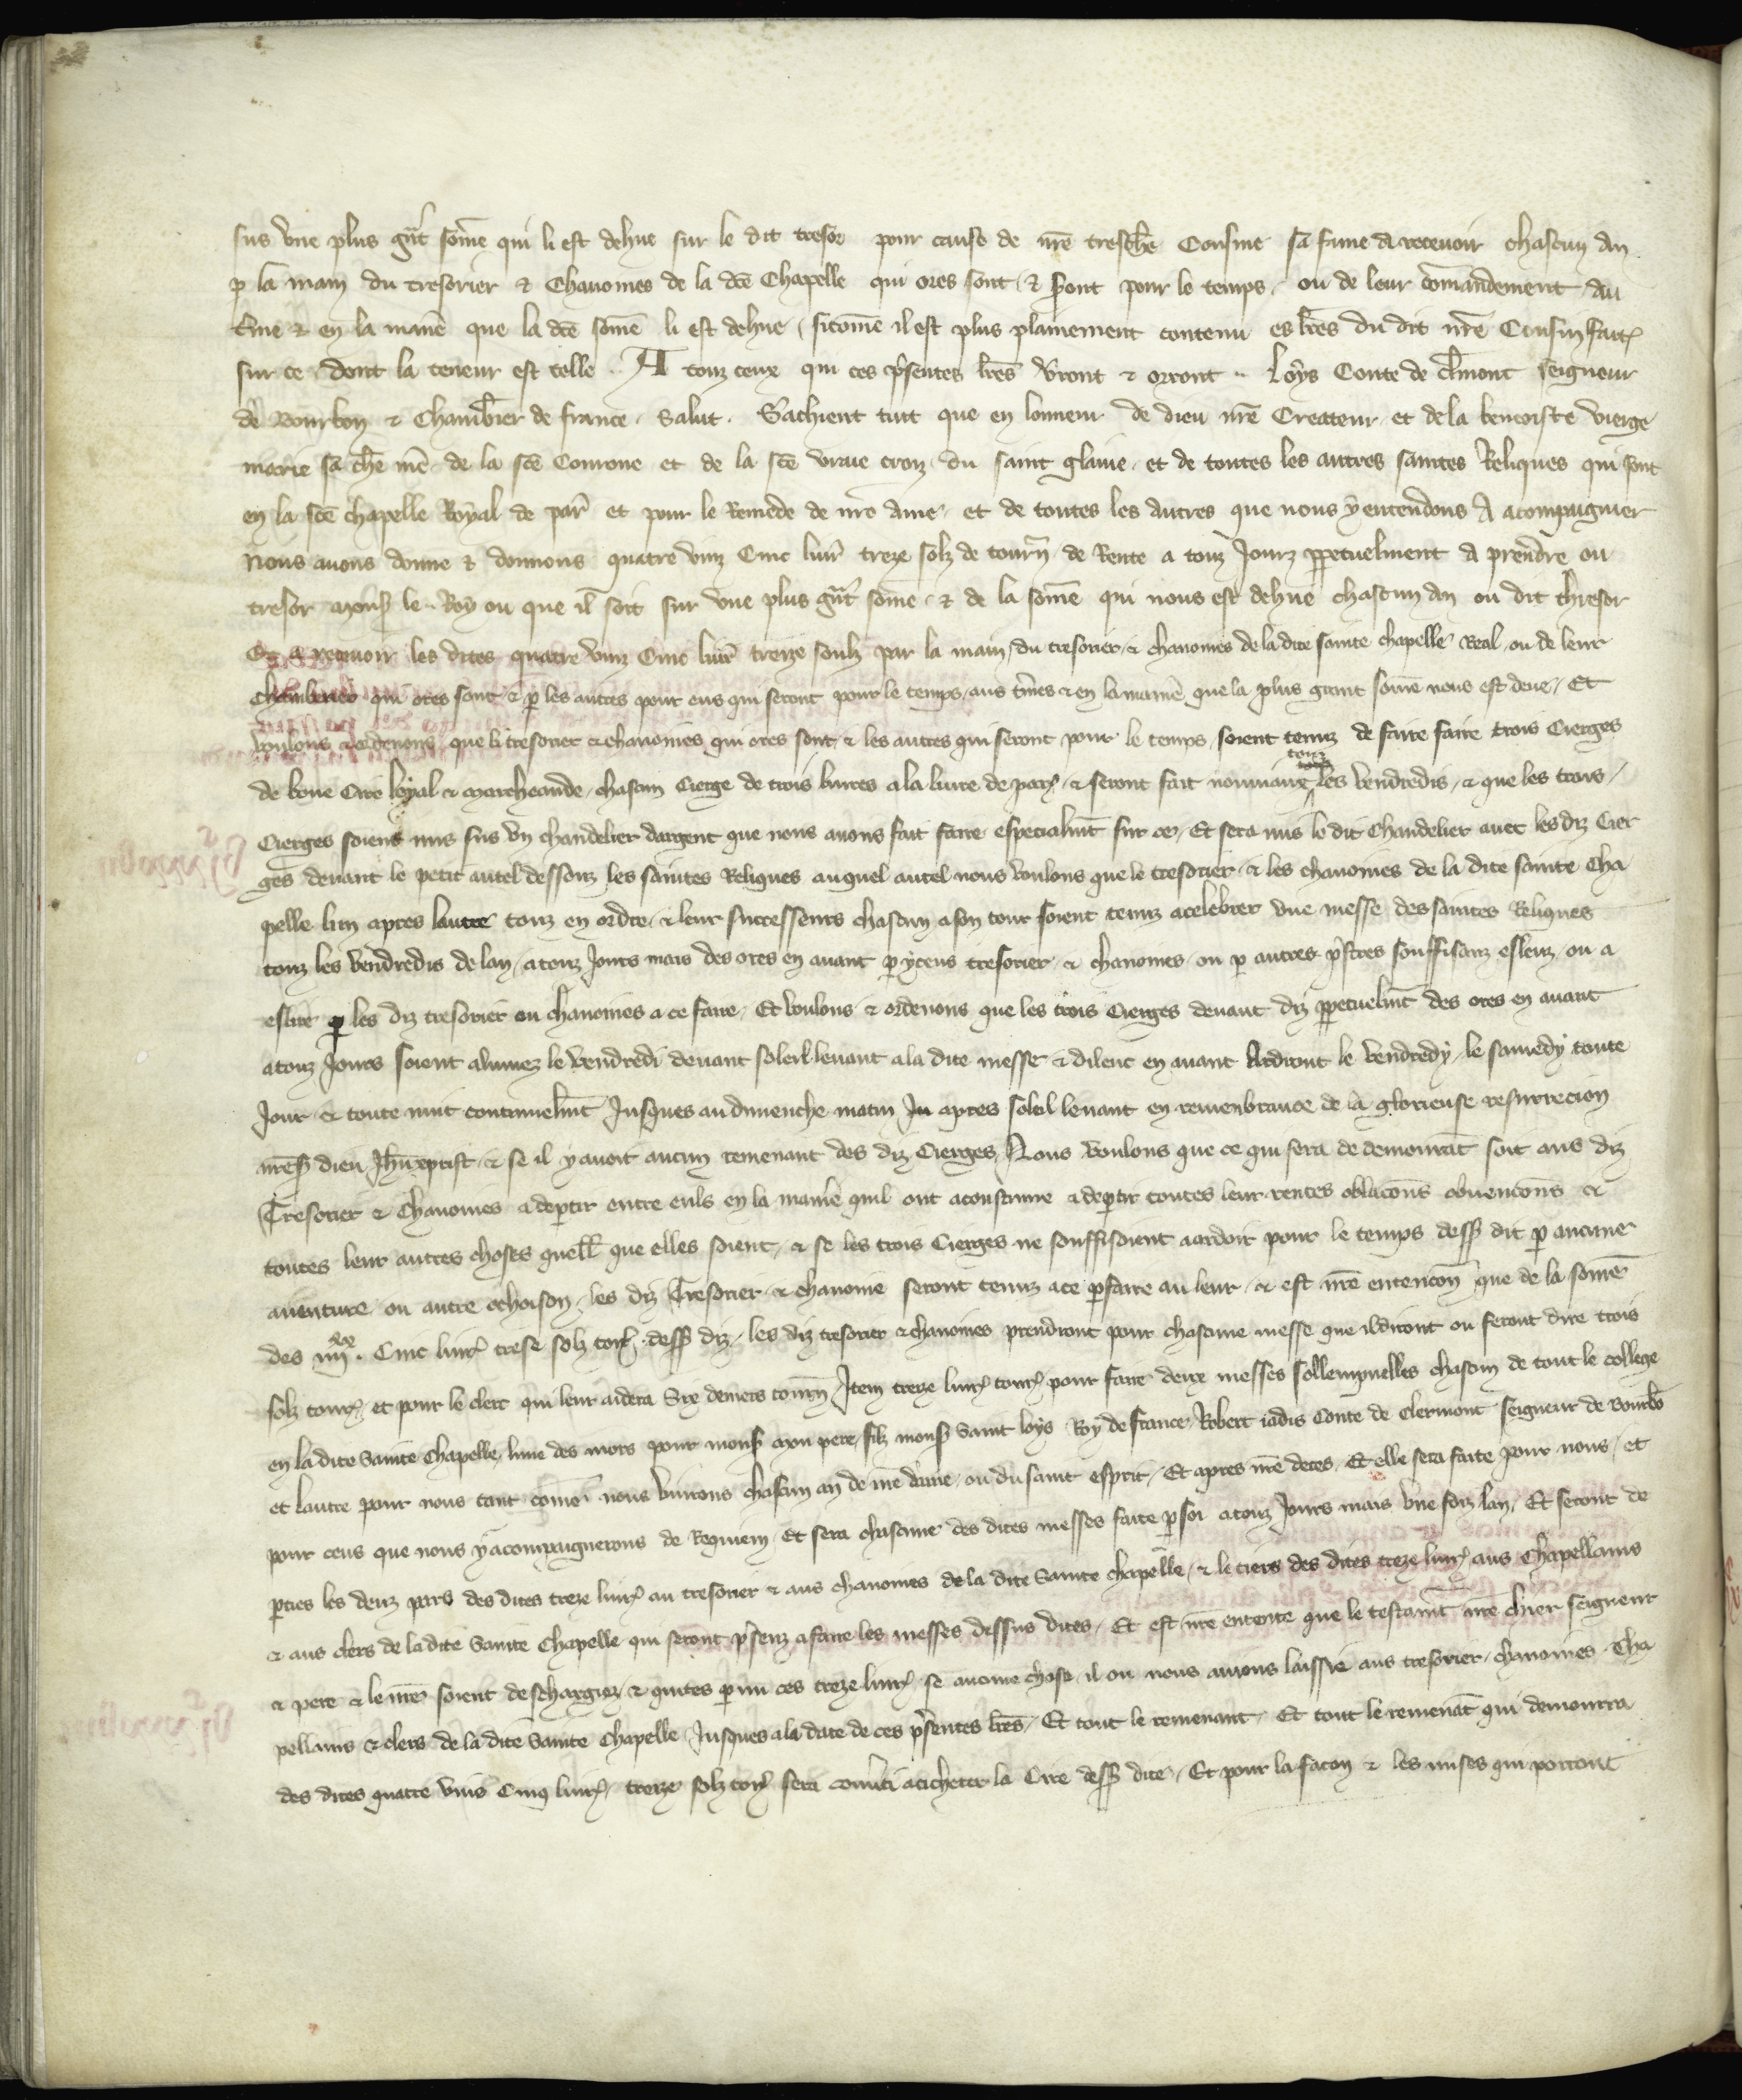 sus vne plus gñt some qui li est dehue sur le dit tresor pour cause de nr̃e tresch̃e Cousine sa fame a receuoir chascun an
p la main du tresorier & Chanoines de la dc̃e Chapelle qui ores sont & s̃ont pour le temps ou de leur com̃andement au
t̃me & en la manie᷑ que la dc̃e som̃e li est dehue sicom̃e il est plus plainement contenu es lr̃es du dit nr̃e Cousin faites
sur ce dont la teneur est telle . A touz ceux qui ces p̃sentes lr̃es v̾ront & orront .. Loys Conte de Cl̾mont seigneur
de Bourbon & Chamb̾rier de france . Salut . Sachient tuit que en lonneur de dieu nr̃e Creatteur et de la benoiste vierge
marie sa ch̃e me᷑ de la sce᷑ Corone et de la sce᷑ vraie croiz du saint glaiue et de toutes les autres saintes Reliques qui sont
en la sce᷑ chapelle Royal de par̃ et pour le Remede de nr̃e ame et de toutes les autres que nous y entendons A acompaignier
Nous auons donne & donnons quatre vinz Cinc liur̃ treze solz de tourñ de Rente a touz Jourz ppetuelment a prendre ou
tresor Mons̃ le Roy ou que il soit sur vne plus gñt some & de la some qui nous est dehue chascun an ou dit thresor
Et a receuoir les dites quatre vinz Cinc liur̃ treize soulz par la main du tresorier & chanoines de la dite sainte chapelle Real ou de leur
chamberier qui ores sont & p les autres pour eus qui seront pour le temps aus t̃mes & en la manie᷑ que la plus grant some nous est deue . Et
voulons & ordenons que li tresorier & chanoines qui ores sont & les autres qui seront pour le temps soient tenuz de faire faire trois Cierges
de bone Cire loyal & marcheande chascun Cierge de trois liures a la liure de par̃ & seront fait nouuiaux touz les vendredis & que les trois
Cierges soient mis sus vn chandelier dargent que nous auons fait faire especialm̃t sur ce . Et sera mis le dit Chandelier auec les diz Cier
ges deuant le petit autel dessouz les saintes Reliques auquel autel nous voulons que le tresorier & les chanoines de la dite sainte Cha
pelle lun apres lautre touz en ordre & leur successeurs chascun a son tour soient tenuz a celebrer vne messe des saintes Reliques
touz les vendredis de lan a touz Jours mais des ores en auant p yceus tresorier & chanoines ou p autres p̃stres souffisanz esleuz ou a
eslire p les diz tresorier ou chanoines a ce faire . Et voulons & ordenons que les trois Cierges deuant diz ppetuelm̃t des ores en auant
a touz Jours soient alumez le vendredi deuant soleil leuant a la dite messe & dilenc en auant Ardront le vendredy le samedy toute
Jour & toute nuit continuelm̃t Jusques au dimenche matin apres soleil leuant en remenbrance de la glorieuse resurrecion
nr̃es̃ dieu Jhũxprist & se il y auoit aucun remenant des diz Cierges Nous voulons que ce qui sera de demourãt soit aus diz
Tresorier & Chanoines a departir entre euls en la manie᷑ quil ont acoustume a departir toutes leur rentes oblacõns obuencõns &
toutes leur autres choses quell̃ que elles soient & se les trois Cierges ne souffisoient a ardoir pour le temps dess̃ dit p aucune
auenture ou autre ochoison les diz Tresorier & chanoine seront tenuz a ce p̱faire au leur & est nr̃e entencõn que de la some᷑
des iiijxx . Cinc liur̃ trese solz tor̃ dess̃ diz les diz tresorier & chanoines prendront pour chascune messe que il diront ou feront dire trois
solz tour̃ et pour le clerc qui leur aidera Six deniers tourñ Item treze liur̃ tour̃ pour faire deux messes sollempnelles chascun de tout le college
en la dite Sainte Chapelle lune des mors pour mons̃ mon pere filz mons̃ Saint loys Roy de france Robert iadis Conte de Clermont seigneur de Bourbõ
et lautre pour nous tant come nous viurons chascun an de nr̃e dame ou du saint esprit . Et apres nr̃e deces . Et elle sera faite pour nous et
pour ceus que nous y acompaignerons de Requiem . Et sera chascune des dites messes faite p soi a touz Jours mais vne foiz lan . Et seront de
parties les deuz pars des dites treze liur̃ au tresorier & aus chanoines de la dite Sainte chapelle & le tiers des dites treze liur̃ aus Chapellains
& aus clers de la dite Sainte Chapelle qui seront p̃senz a faire les messes dessus dites . Et est nr̃e entente que le testam̃t nr̃e chier seigneur
& pere & le nr̃e soient deschargiez & quites p mi ces treze liur̃ se aucune chose il ou nous auions laissie aus tresorier chanoines . Cha
pellains & clers de la dite Sainte Chapelle Jusques a la date de ces p̃sentes lr̃es . Et tout le remenant . Et tout le remenãt qui demourra
des dites quatre vins Cinq liur̃ treize solz tor̃ sera conũti a acheter la Cire dess̃ dite . Et pour la facon & les mises qui porront